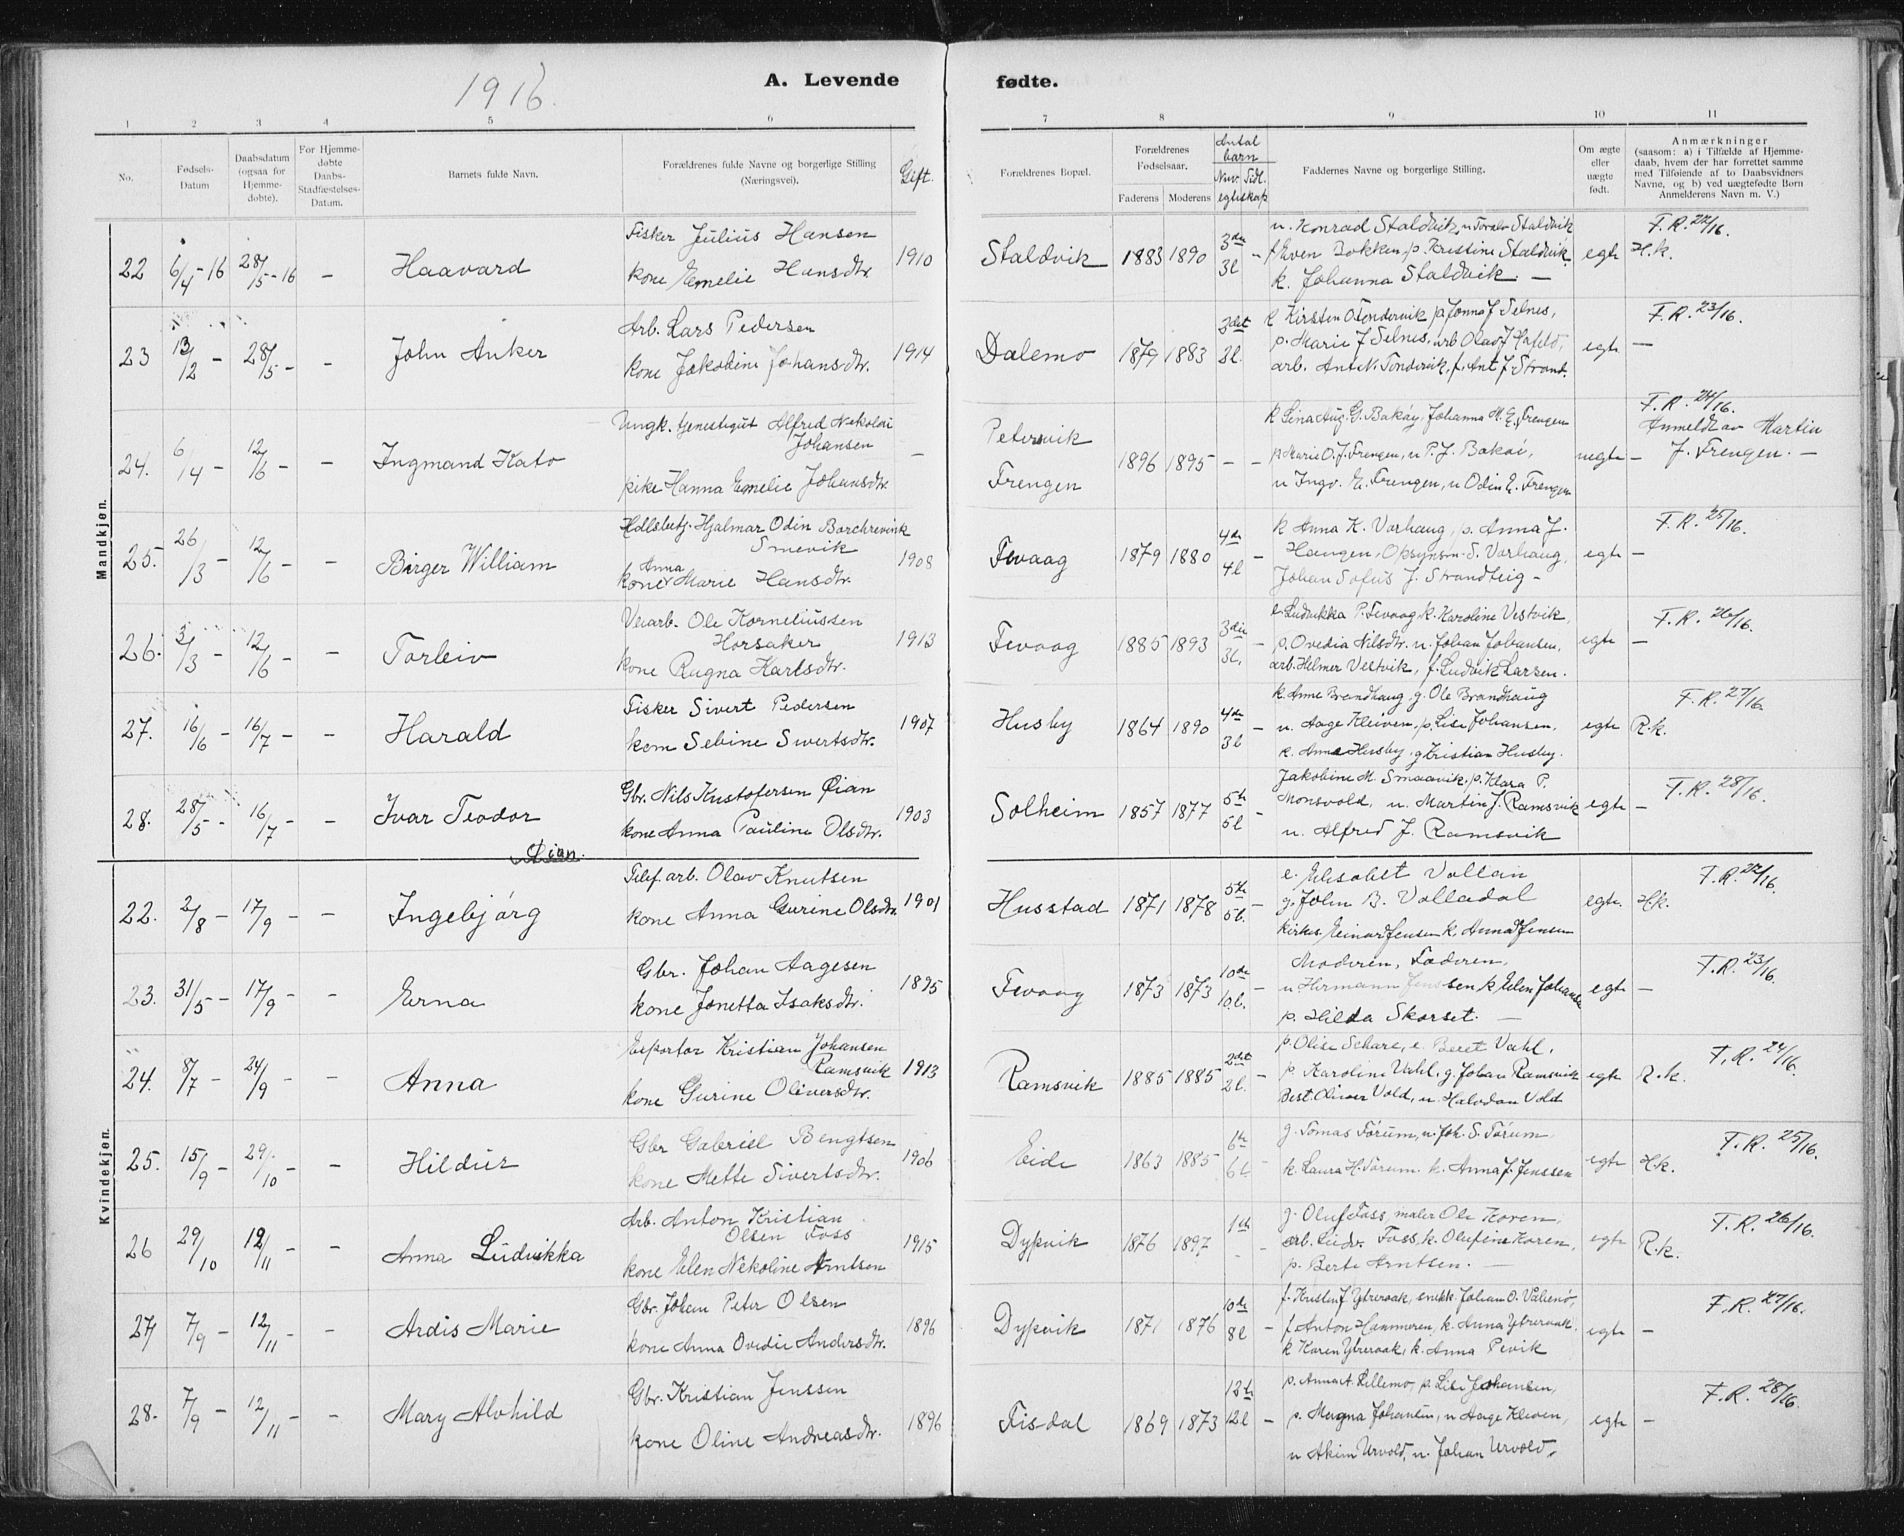 1916.
A. Levende fødte.
1 2 3 4 5 6 7 8 9 10 11
No.
Fødsels-Datum
Daabsdatum (ogsaa for Hjemme-døbte).
For Hjemme-døbte Daabs-Stadfæstelses-Datum.
Barnets fulde Navn.
Forældrenes fulde Navne og borgerlige Stilling (Næringsvei).
Gift.
Forældrenes Bopæl.
Forældrenes Fødselsaar.
Faderens Moderens
Antal barn
Nuv. Tidl. egteskap
Faddernes Navne og borgerlige Stilling.
Om ægte eller uægte født.
Anmærkninger
(saasom: a) i Tilfælde af Hjemme-daab, hvem der har forrettet samme med Tilføiende af to Daabsvidners Navne, og b) ved uægtefødte Børn Anmelderens Navn m. V.)
Mandkjøn.
22 6/4-16 28/5-16 – Haavard
Fisker Julius Hansen
kone Emelie Hansdtr 1910
Staldvik 1883 1890 3die 3l –
u. Konrad Staldvik, u Toralv Staldvik
f Even Bokken, p. Kristine Staldvik
k. Johanna Staldvik –
egte F.R. 22/16. H.k.
23 13/12 – 28/5 – – John Anker
Arb. Lars Pedersen
kone Jakobine Johansdtr. 1914
Dalemo 1879 1883 3det 3l. –
k Kirsten O Tøndervik p Jonna J Selnes,
p. Marie J Selnes, arb Olav J
arb. Ant N. Tøndervik, f. Ant J Strand.
egte F.R. 23/16. –
24. 6/4 – 12/6 – – Ingmand Kato
Ungk. tjenestegut Alfred Nekolai Johansen
pike Hanna Emelie Johansdtr. –
Petersvik
Frengen 1896 1895 – –
k Lina Aug. G. Bakøy, Johanna M. E. Frengen
p Marie O. J. Frengen, u P. J. Bakøi,
u Ingv. E. Frengen, u Odin E. Frengen
uegte F.R. 24/16. Anmeldt av Martin J. Frengen. –
25. 26/3 – 12/6 – – Birger William
Hdlsbetj. Hjalmar Odin Borchrevink Smevik
kone Anna Marie Hansdtr. 1908
Fevaag 1879 1880 4de 4l –
k Anna K. Vorhaug, p. Anna J.
Haugen, Opsynsm. S. Vorhaug,
Johan Sofus J. Strandteig –
egte F.R. 25/16. –
26. 3/3 – 12/6 – – Torleiv
Veiarb. Ole Korneliussen Horsaker
kone Ragna Karlsdtr. 1913
Fevaag 1885 1893 3die 3l. –
e. Ludvikka P. Fevaag k. Karoline Vestvik,
p. Ovedia Nilsdtr. u. Johan Johansen,
arb. Helmer Vestvik, f. Ludvik Larsen.
egte F.R. 26/16. –
27. 16/6 – 16/7 – – Harald
Fisker Sivert Pedersen
kone Sebine Sivertsdtr. 1907
Husby 1864 1890 4de 3l –
k. Anne Brandhaug, g. Ole Brandhaug
u. Aage Kleiven, p. Lise Johansen,
k. Anna Husby, g Kristian Husby.
egte F.R. 27/16. R.k.
28. 28/5 – 16/7 – – Ivar Teodor Øian.
Gbr. Nils Kristofersen Øian
kone Anna Pauline Olsdtr. 1903
Solheim 1857 1877 5te 5l –
Jakobine M. Smaavik, p. Klara P.
Monsvold, u. Martin J. Ramsvik
u. Alfred J. Ramsvik
egte F.R. 28/16. –
Kvindekjøn.
22. 2/8 – 17/9 – – Ingebjørg
Telef. arb. Olav Knutsen
kone Anna Gurine Olsdtr. 1901
Husstad 1871 1878 5te 5l. –
e. Elisabet Vollan
g. John B. Volladal
kirkes. Einar Jensen k. Anna Jensen
egte. F.R. 22/16. H.k.
23. 31/5 – 17/9 – – Erna
Gbr. Johan Aagesen
kone Jonetta Isaksdtr. 1895
Fevaag 1873 1873 10de 10.l. –
Moderen, Faderen,
u Hirmann Jenssen k Elen Johansen
p. Hilda Skorset. –
egte F.R. 23/16. –
24. 8/7 – 24/9 – – Anna
Exportør Kristian Johansen Ramsvik
kone Gurine Oliversdtr. 1913
Ramsvik 1885 1885 2det 2l. –
p. Olise Schare, e. Beret Vahl,
p. Karoline Vahl, g. Johan Ramsvik
Best. Oliver Vold, u. Halvdan Vold
egte F.R. 24/16. R.k.
25. 15/9 – 29/10 – – Hildur
Gbr Gabriel Bengtsen
kone Mette Sivertsdtr. 1906
Eide 1863 1885 6te 6l –
g. Tomas Tørum, u. Joh. S. Tørum
k. Laura H. Tørum k. Anna J. Jenssen
egte F.R. 25/16. H.k.
26 29/10 – 12/11 – – Anna Ludvikka
Arb. Anton Kristian Olsen Foss
kone Elen Nekoline Arntsen 1915
Dypvik 1876 1897 1ste – –
g. Oluf Foss, maler Ole Koren,
arb. Ludv. Foss, k. Olufine Koren,
p. Berte Arntsen. –
egte F.R. 26/16. R.k.
27 7/9 – 12/11 – – Ardis Marie
Gbr. Johan Peter Olsen
kone Anna Ovedie Andersdtr. 1896
Dypvik 1871 1876 10de 8l –
f. Kristen J Ytreraak, snekk Johan O. Vallemo,
f. Anton Hammeren, k. Anna Ytreraak.
k Karen Ytreraak, k. Anna Pevik
egte F.R. 27/16. –
28. 7/9 – 12/11 – – Mary Alvhild
Gbr. Kristian Jenssen
kone Oline Andreasdtr. 1896
Fisdal 1869 1873 12te 12l –
p. Anna t. Lillemo, p. Lise Johansen,
p. Magna Johansen, u Aage Kleven,
u Akim Urvold, u. Johan Urvold.
egte F.R. 28/16. –